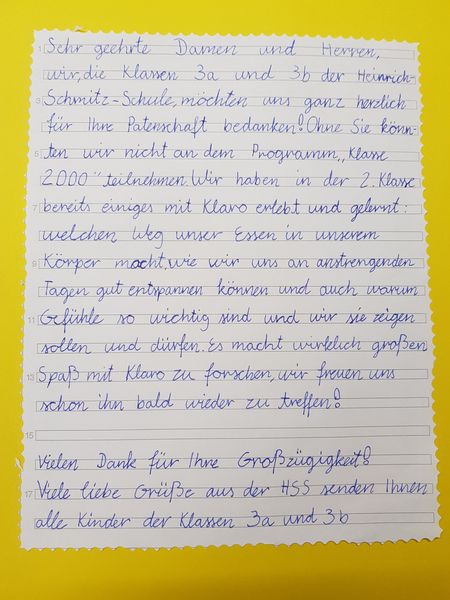 Sehr geehrte Damen und Herren,
wir, die Klassen 3a und 3b der Heinrich-
3 Schmitz-Schule, möchten uns ganz herzlich
für Ihre Patenschaft bedanken! Ohne Sie könn-
5 ten wir nicht an dem Programm „Klasse
2000“ teilnehmen. Wir haben in der 2. Klasse
7 bereits einiges mit Klaro erlebt und gelernt:
welchen Weg unser Essen in unserem
9 Körper macht, wie wir uns an anstrengenden
Tagen gut entspannen können und auch warum
11 Gefühle so wichtig sind und wir sie zeigen
sollen und dürfen. Es macht wirklich großen
13 Spaß mit Klaro zu forschen, wir freuen uns
schon ihn bald wieder zu treffen!
15
Vielen Dank für Ihre Großzügigkeit!
17 Viele liebe Grüße aus der HSS senden Ihnen
alle Kinder der Klassen 3a und 3b